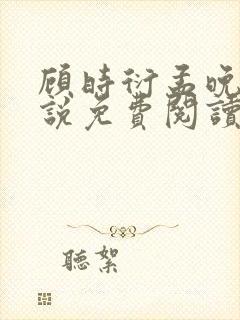 顾時衍孟晚
說免費閱讀
聽絮